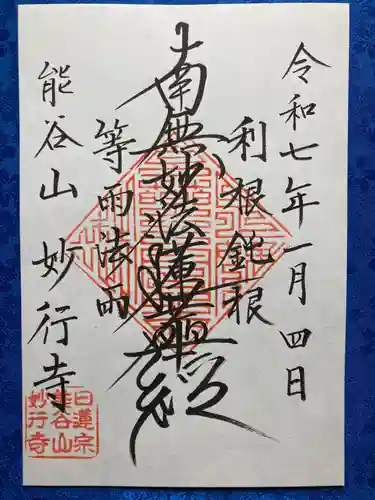 令和七年一月四日
利根鈍根
南無妙法蓮華經
等雨法雨
熊谷山妙行寺
日蓮宗
熊谷山
妙行寺